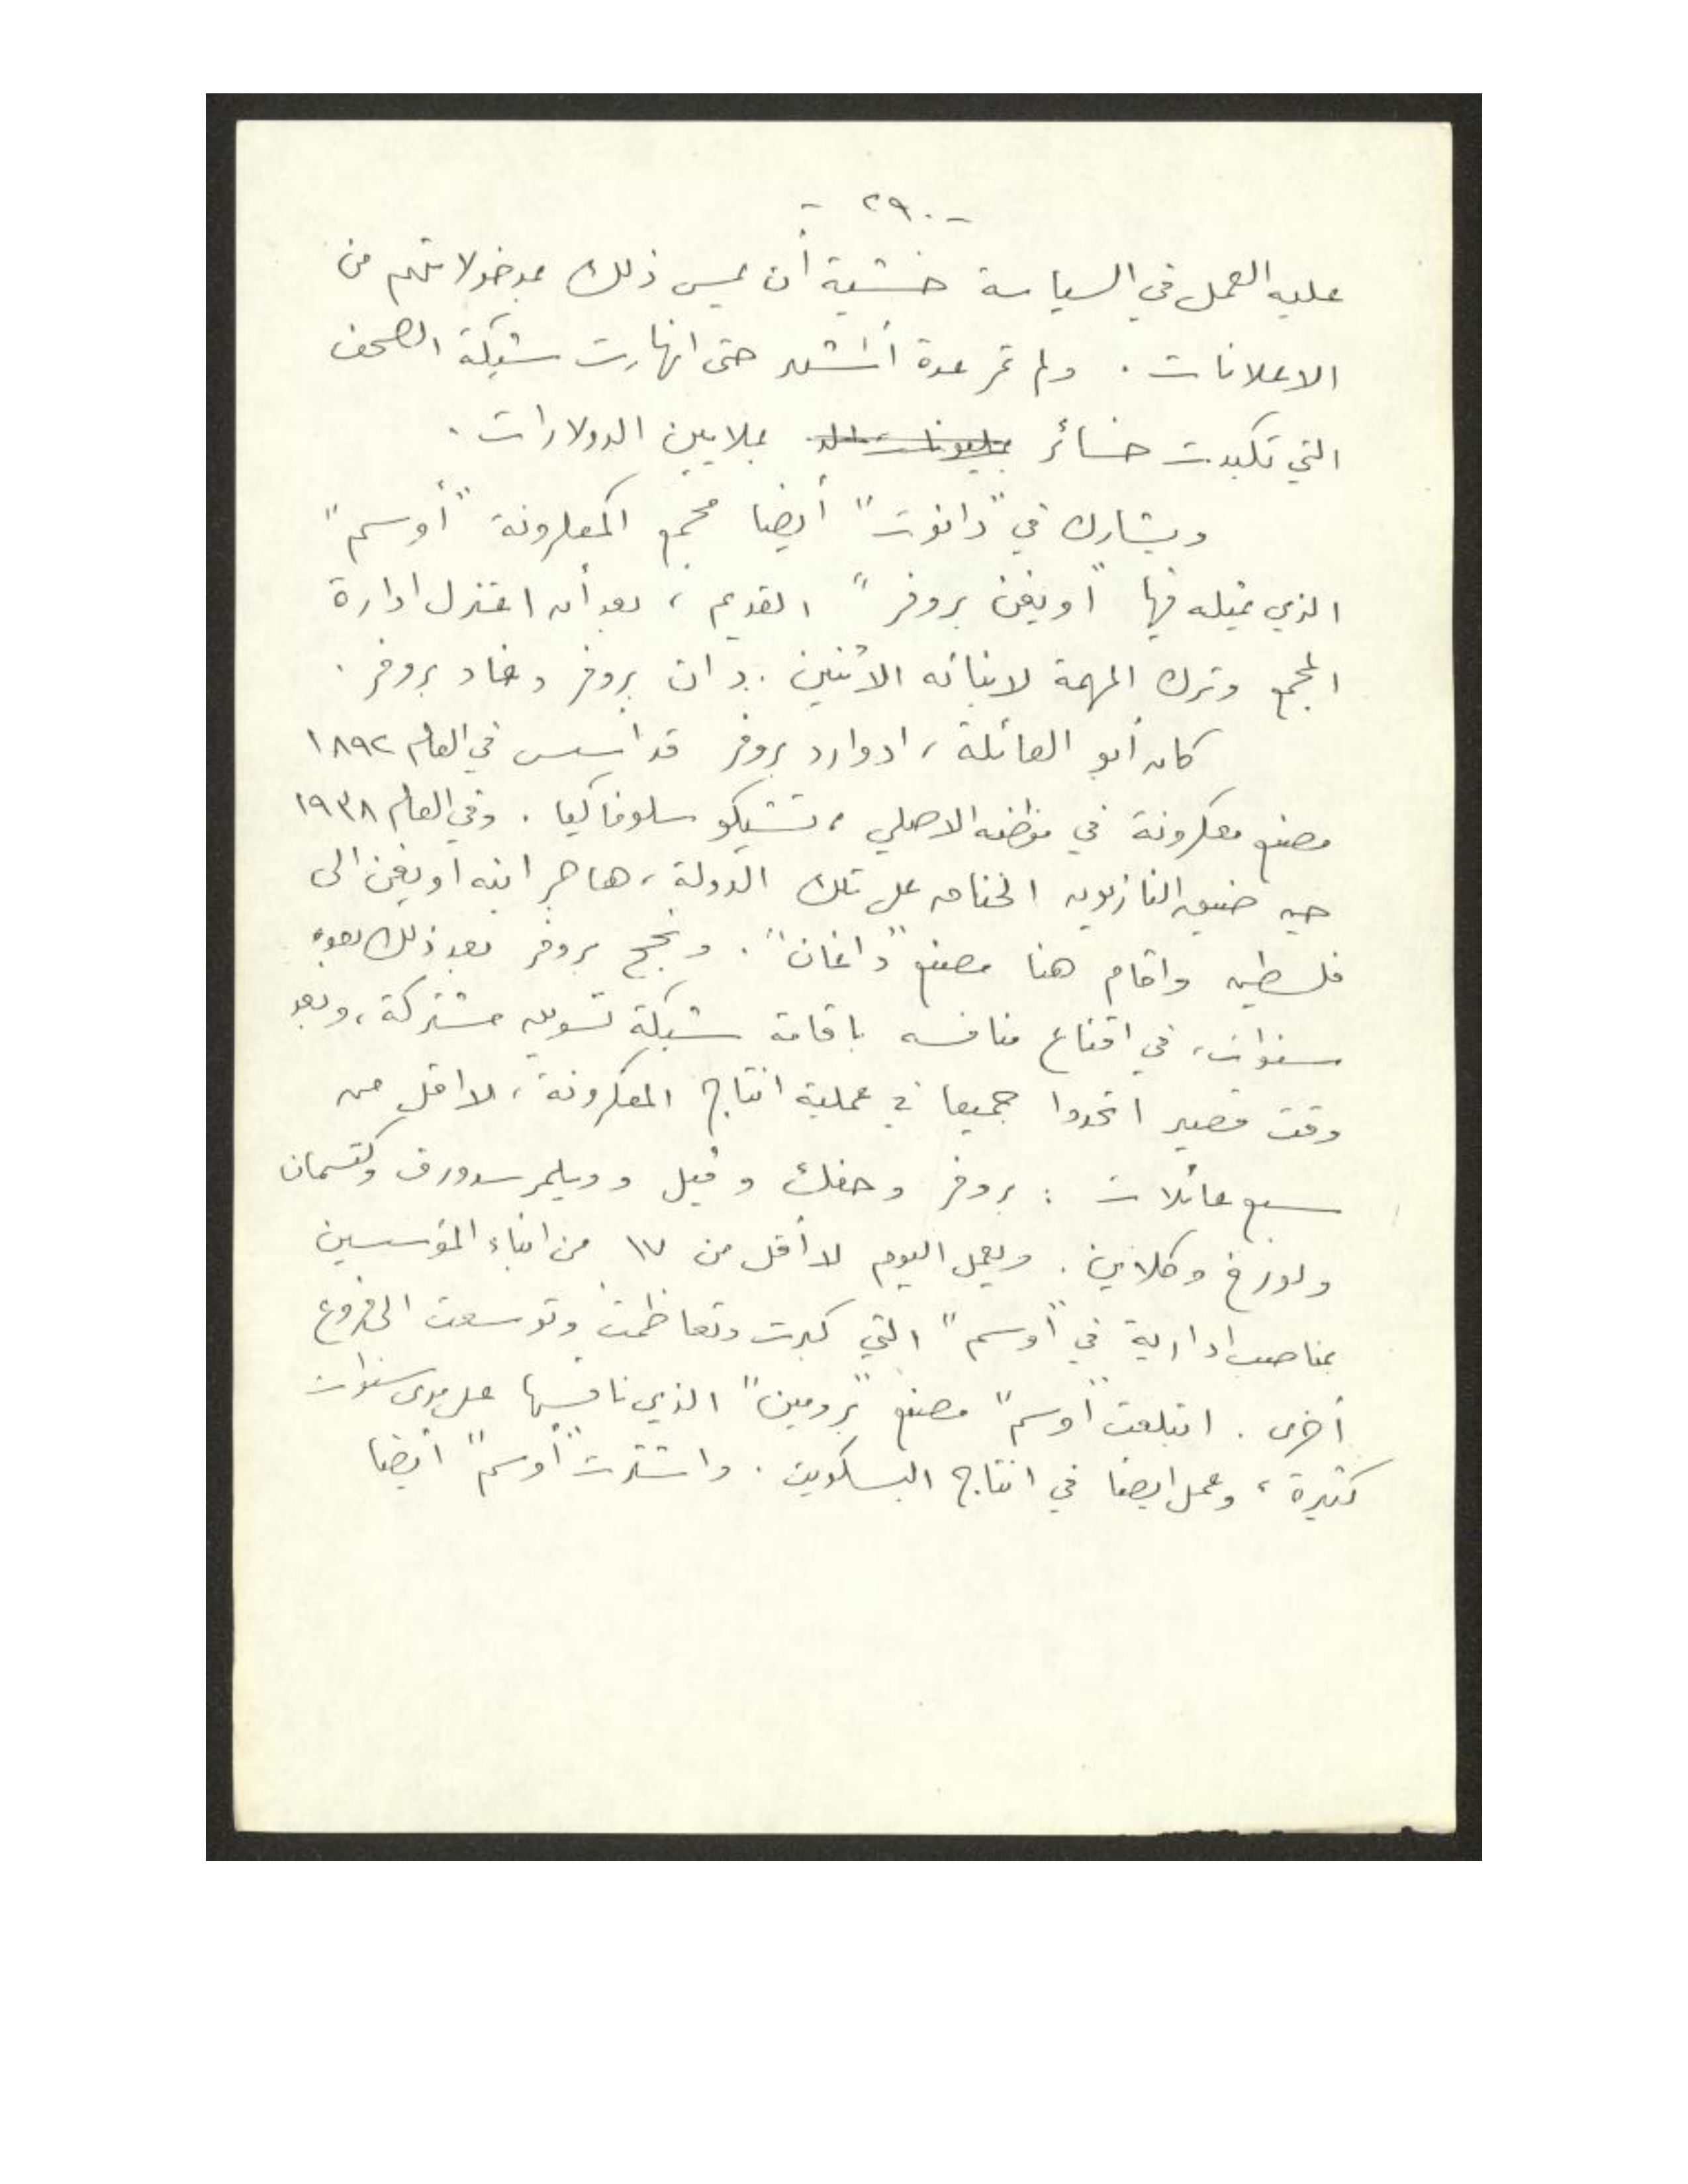 - ٢٩٠ -
عليه العمل في السياسة خشية أن يمس ذلك بمدخولاتهم من
الاعلانات . ولم تمر عدة أشهر حتى انهارت شبكة الصحف
التي تكبدت خسائر بملايين الدولارات .
ويشارك في "دانوت" أيضا مجمع المعكرونة "أوسم"
الذي يمثله فيها "اويغن بروفر" القديم ، بعد أن اعتزل ادارة
المجمع وترك المهمة لابنائه الاثنين : دان بروفر وغاد بروفر .
كان أبو العائلة ، ادوارد بروفر قد أسس في العام ١٨٩٢
مصنع معكرونة في موطنه الاصلي ، تشيكوسلوفاكيا . وفي العام ١٩٣٨
حين ضيق النازيون الخناق على تلك الدولة ، هاجر ابنه اويغن الى
فلسطين واقام هنا مصنع "داغان" . ونجح بروفر بعد ذلك بعدة
سنوات ، في اقناع منافسيه باقامة شبكة تسويق مشتركة ، وبعد
وقت قصير اتحدوا جميعا في عملية انتاج المعكرونة ، لا اقل من
سبع عائلات : بروفر وحفلك وفيل وويلمرسدورف وكتسمان
ولورخ وكلاين . ويعمل اليوم لا أقل من ١٧ من ابناء المؤسسين
بمناصب ادارية في "أوسم" التي كبرت وتعاظمت وتوسعت الى فروع
أخرى . ابتلعت "أوسم" مصنع "برومين" الذي نافسها على مدى سنوات
كثيرة ، وعمل ايضا في انتاج البسكويت . واشترت "أوسم" أيضا